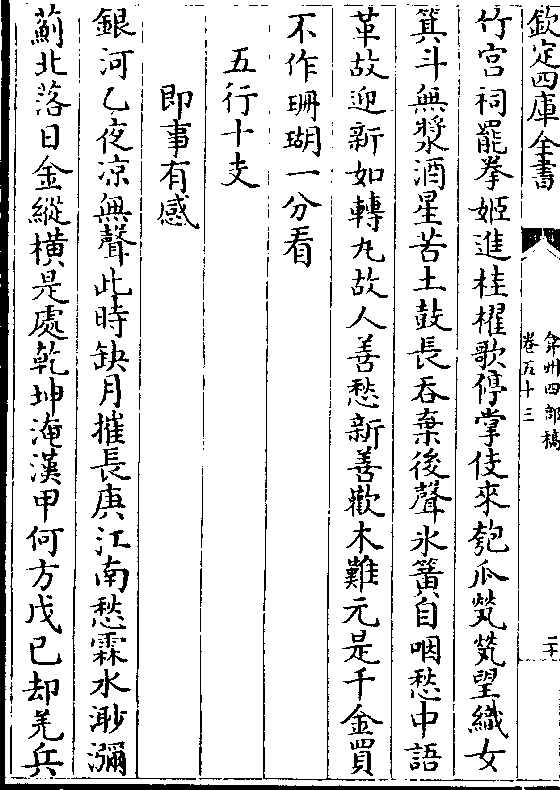 欽定四庫全書
弇州四部稿
卷五十三
二十
竹宮祠罷拳姬進桂櫂歌停掌伎來匏瓜煢煢望織女
箕斗無漿酒星苦土鼓長吞棄後聲氷簧自咽愁中語
革故迎新如轉丸故人善愁新善歡木難元是千金買
不作珊瑚一分看
五行十支
即事有感
銀河乙夜凉無聲此時缺月摧長庚江南愁霖水渺瀰
薊北落日金縱橫是處乾坤淹漢甲何方戊已却羌兵